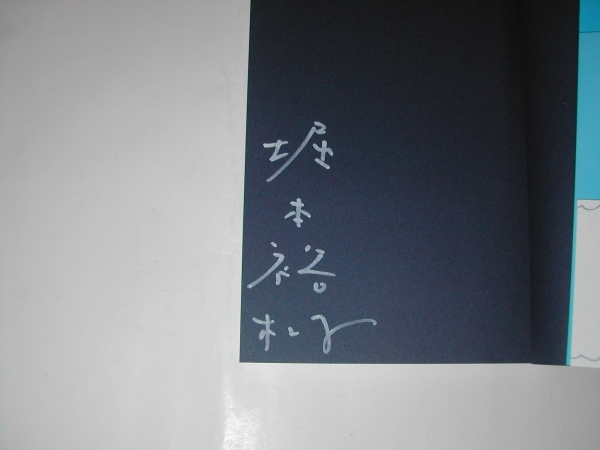 堀本裕樹